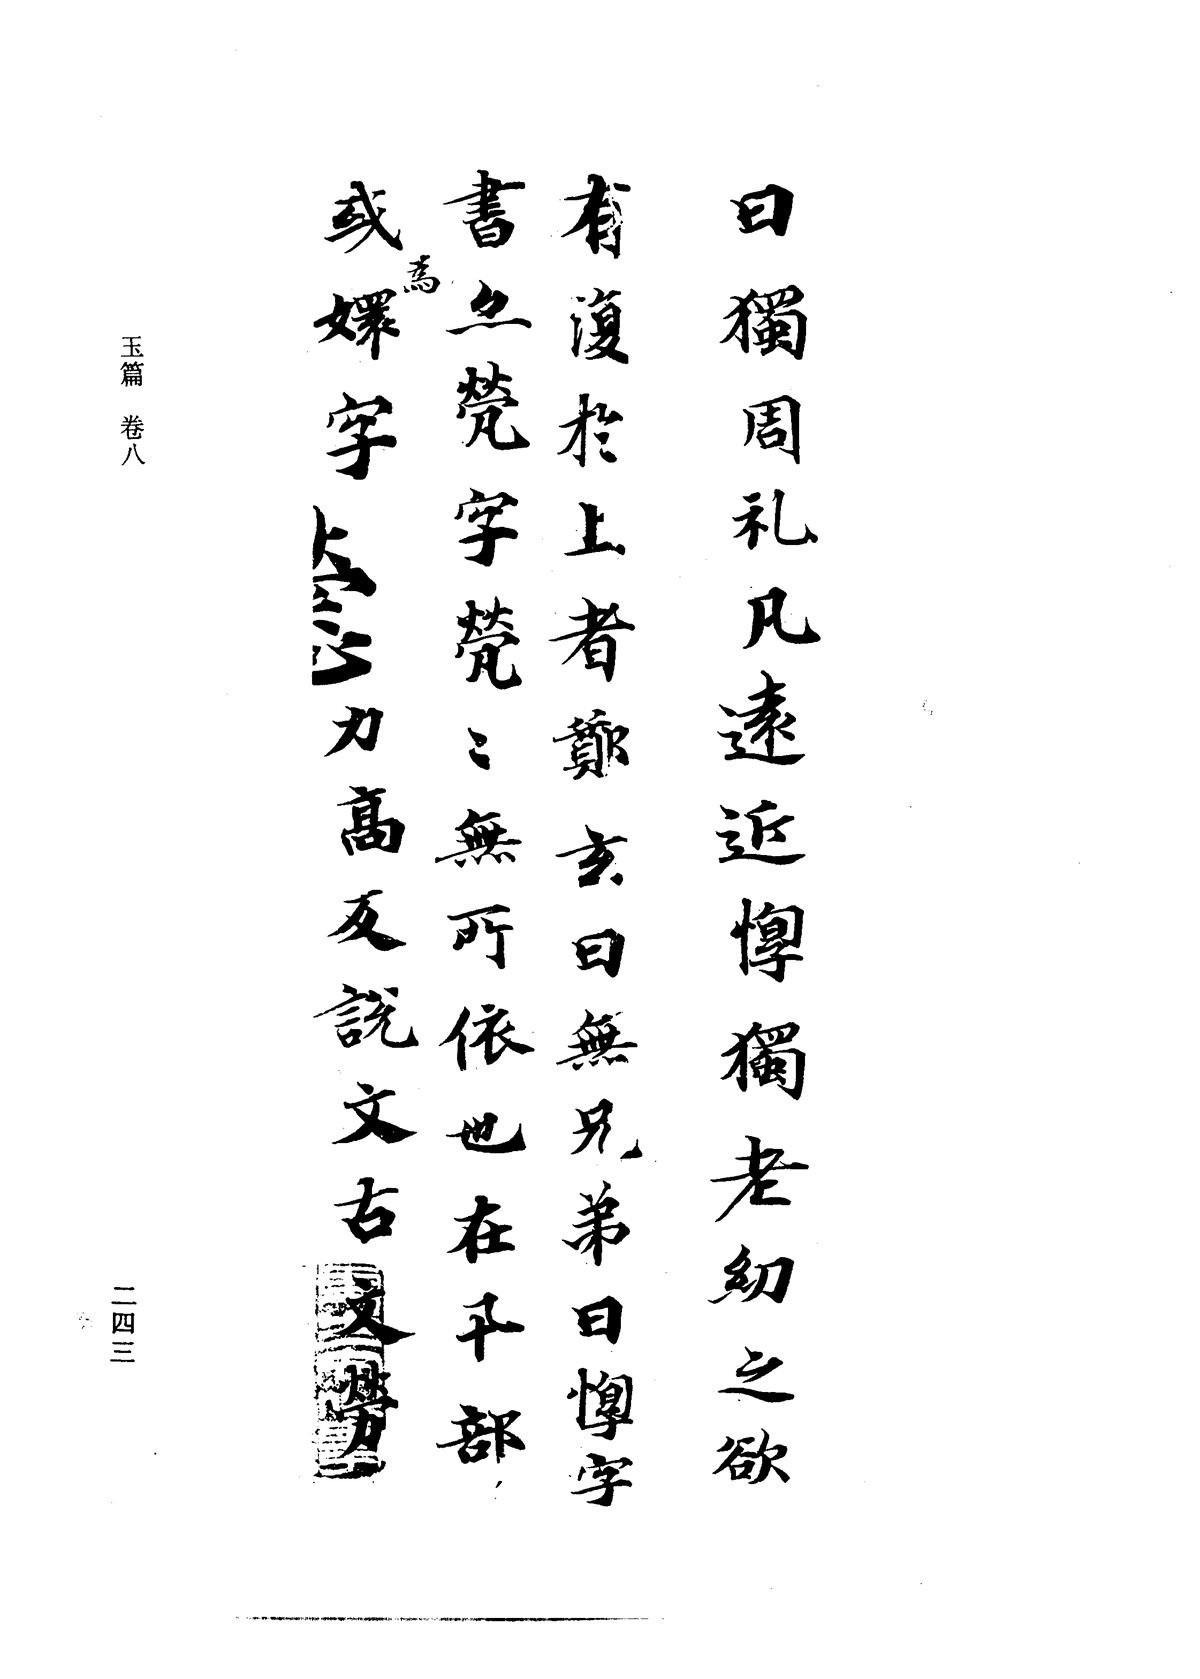 曰獨周礼凡遠近惸獨老幼之欲
有復於上者鄭玄曰無兄弟曰惸字
書亦煢字煢〻無所依也在卂部
或為嬛字
力高反說文古文勞
玉篇 卷八
二四三